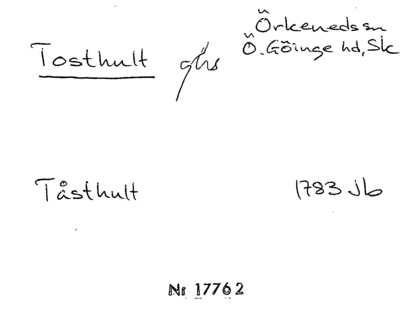 Örkeneds sn
Tosthult ghs Ö. Göinge hd, Sk
Tåsthult 1783 Jb
Nr 17762